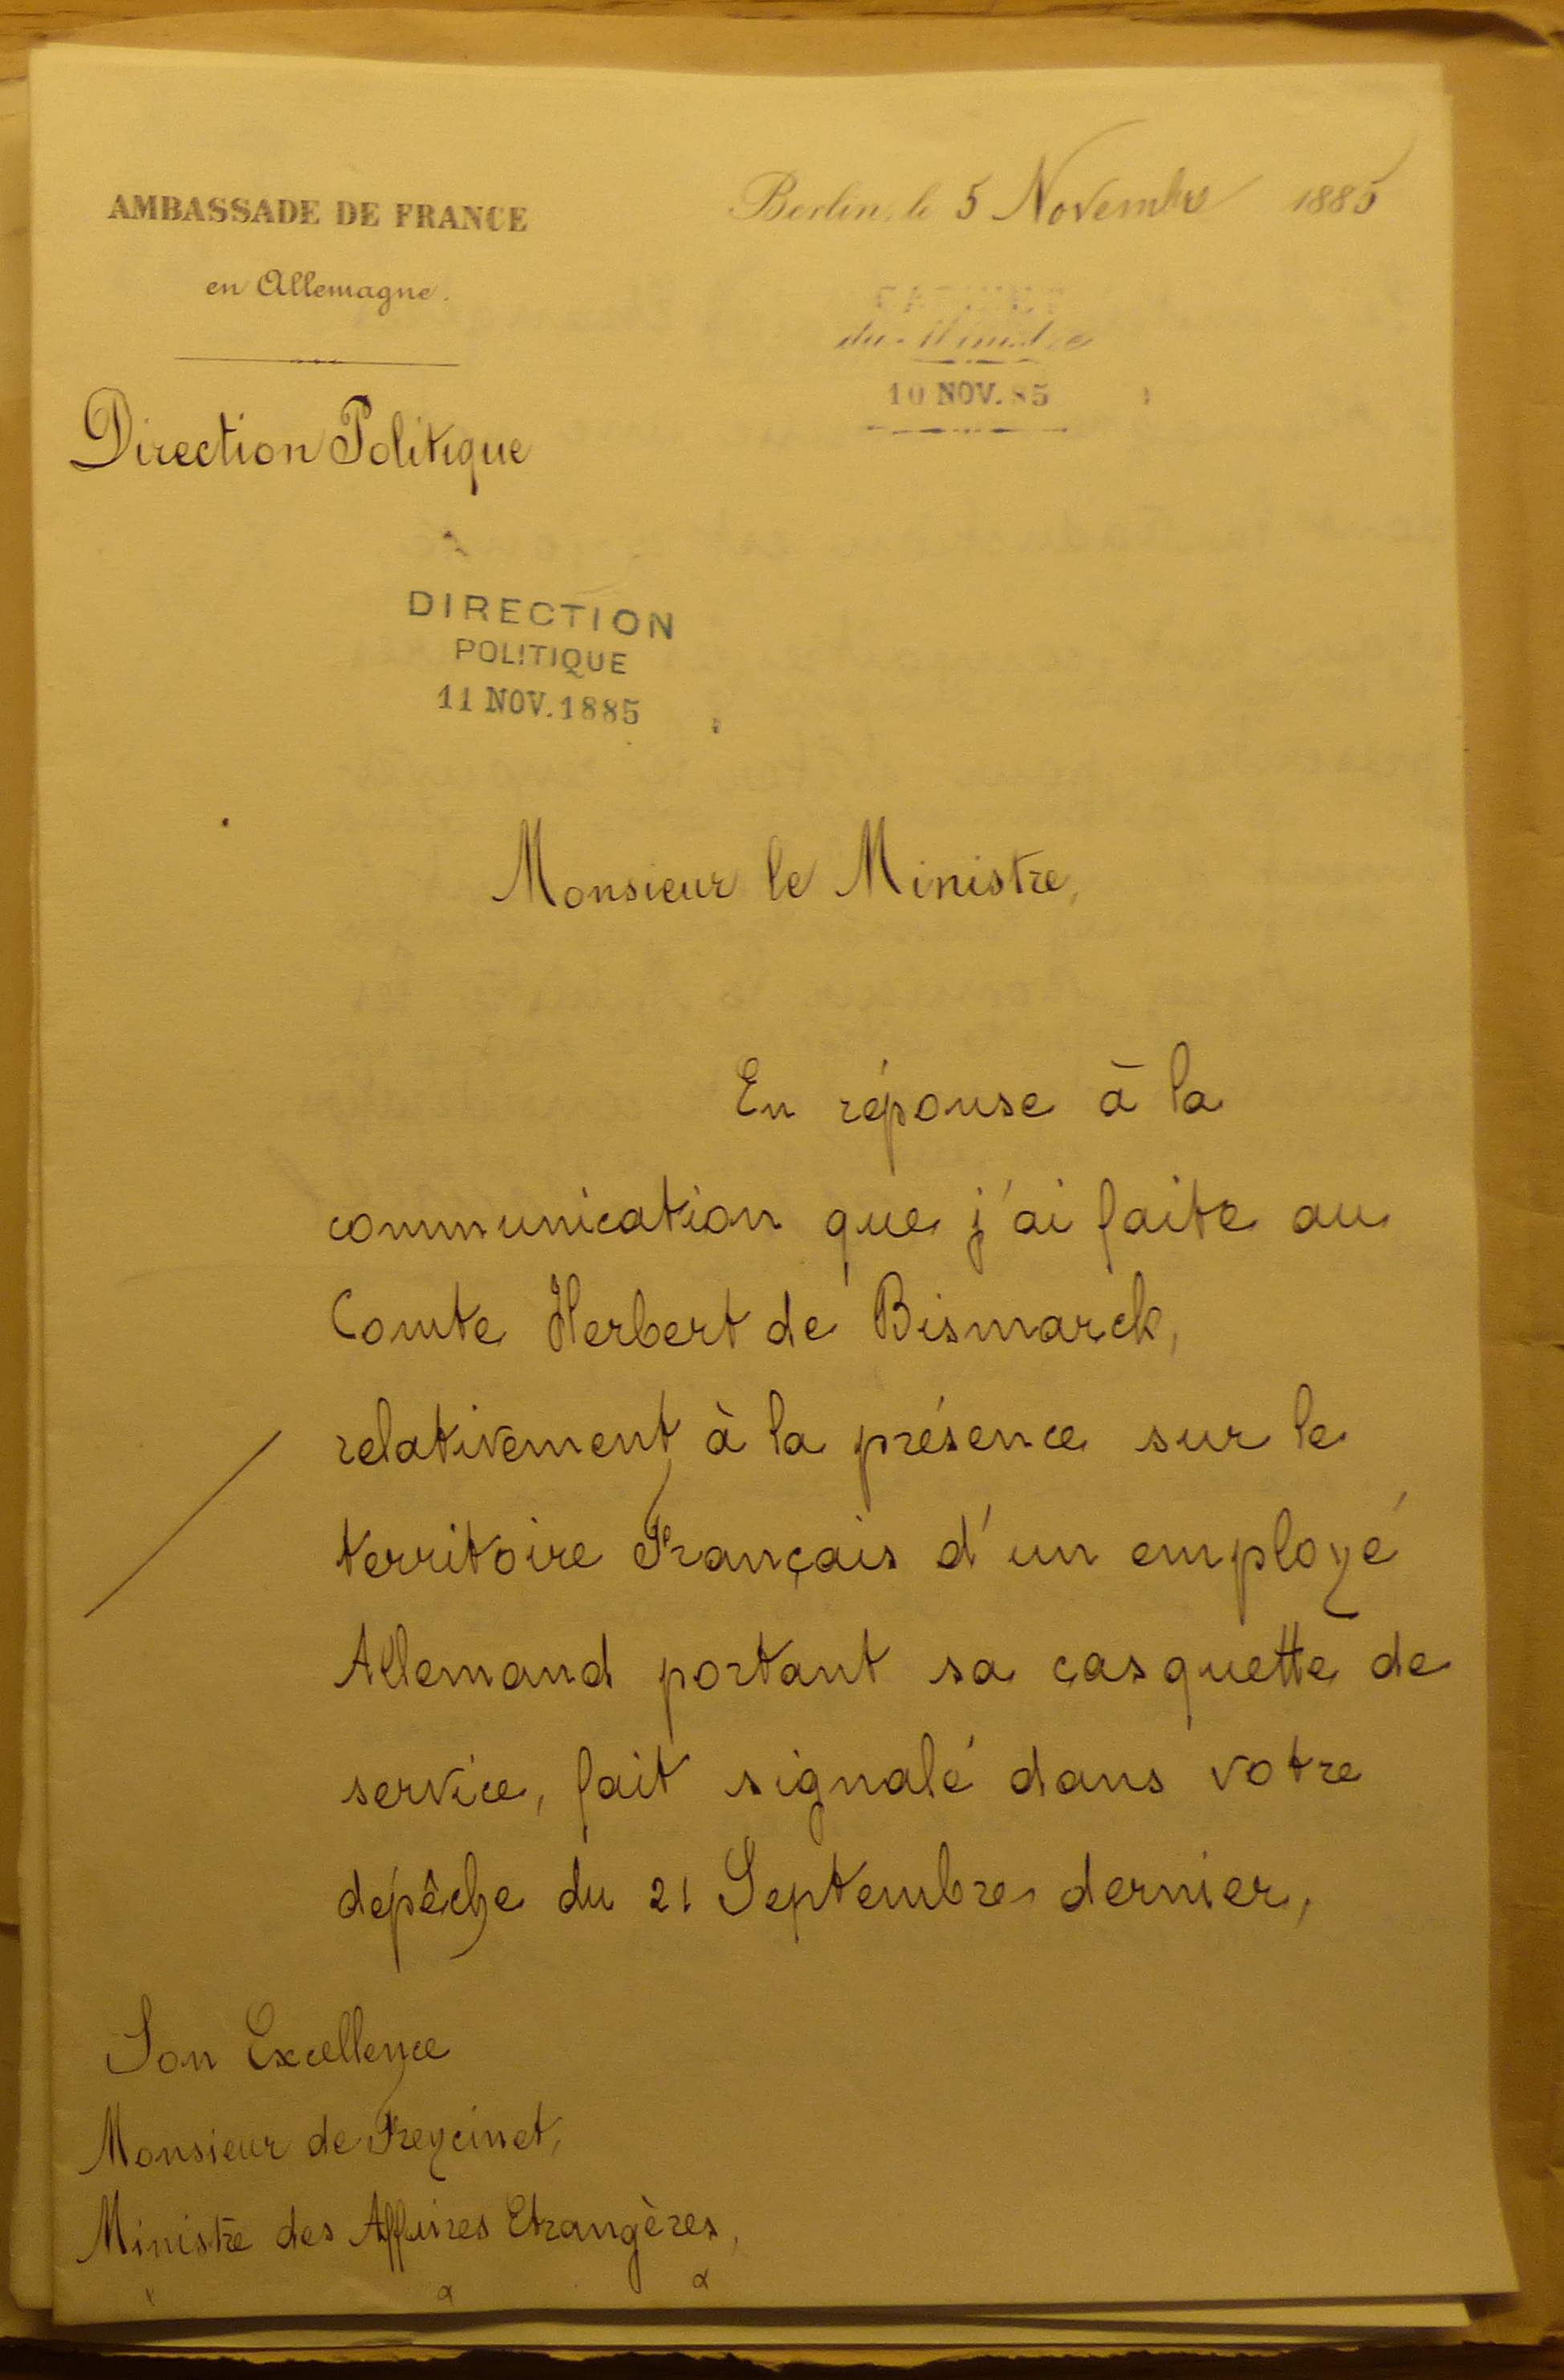 AMBASSADE DE FRANCE
en Allemagne.
Berlin, le 5 Novembre 1885
CABINET
du Ministre
10 NOV. 85
Direction Politique
DIRECTION
POLITIQUE
11 NOV. 1885
Monsieur le Ministre,
En réponse à la
communication que j'ai faite au
Comte Herbert de Bismarck,
relativement à la présence sur le
territoire Français d'un employé
Allemand portant sa casquette de
service, fait signalé dans votre
dépêche du 21 Septembre dernier,
Son Excellence
Monsieur de Freycinet,
Ministre des Affaires Etrangères,